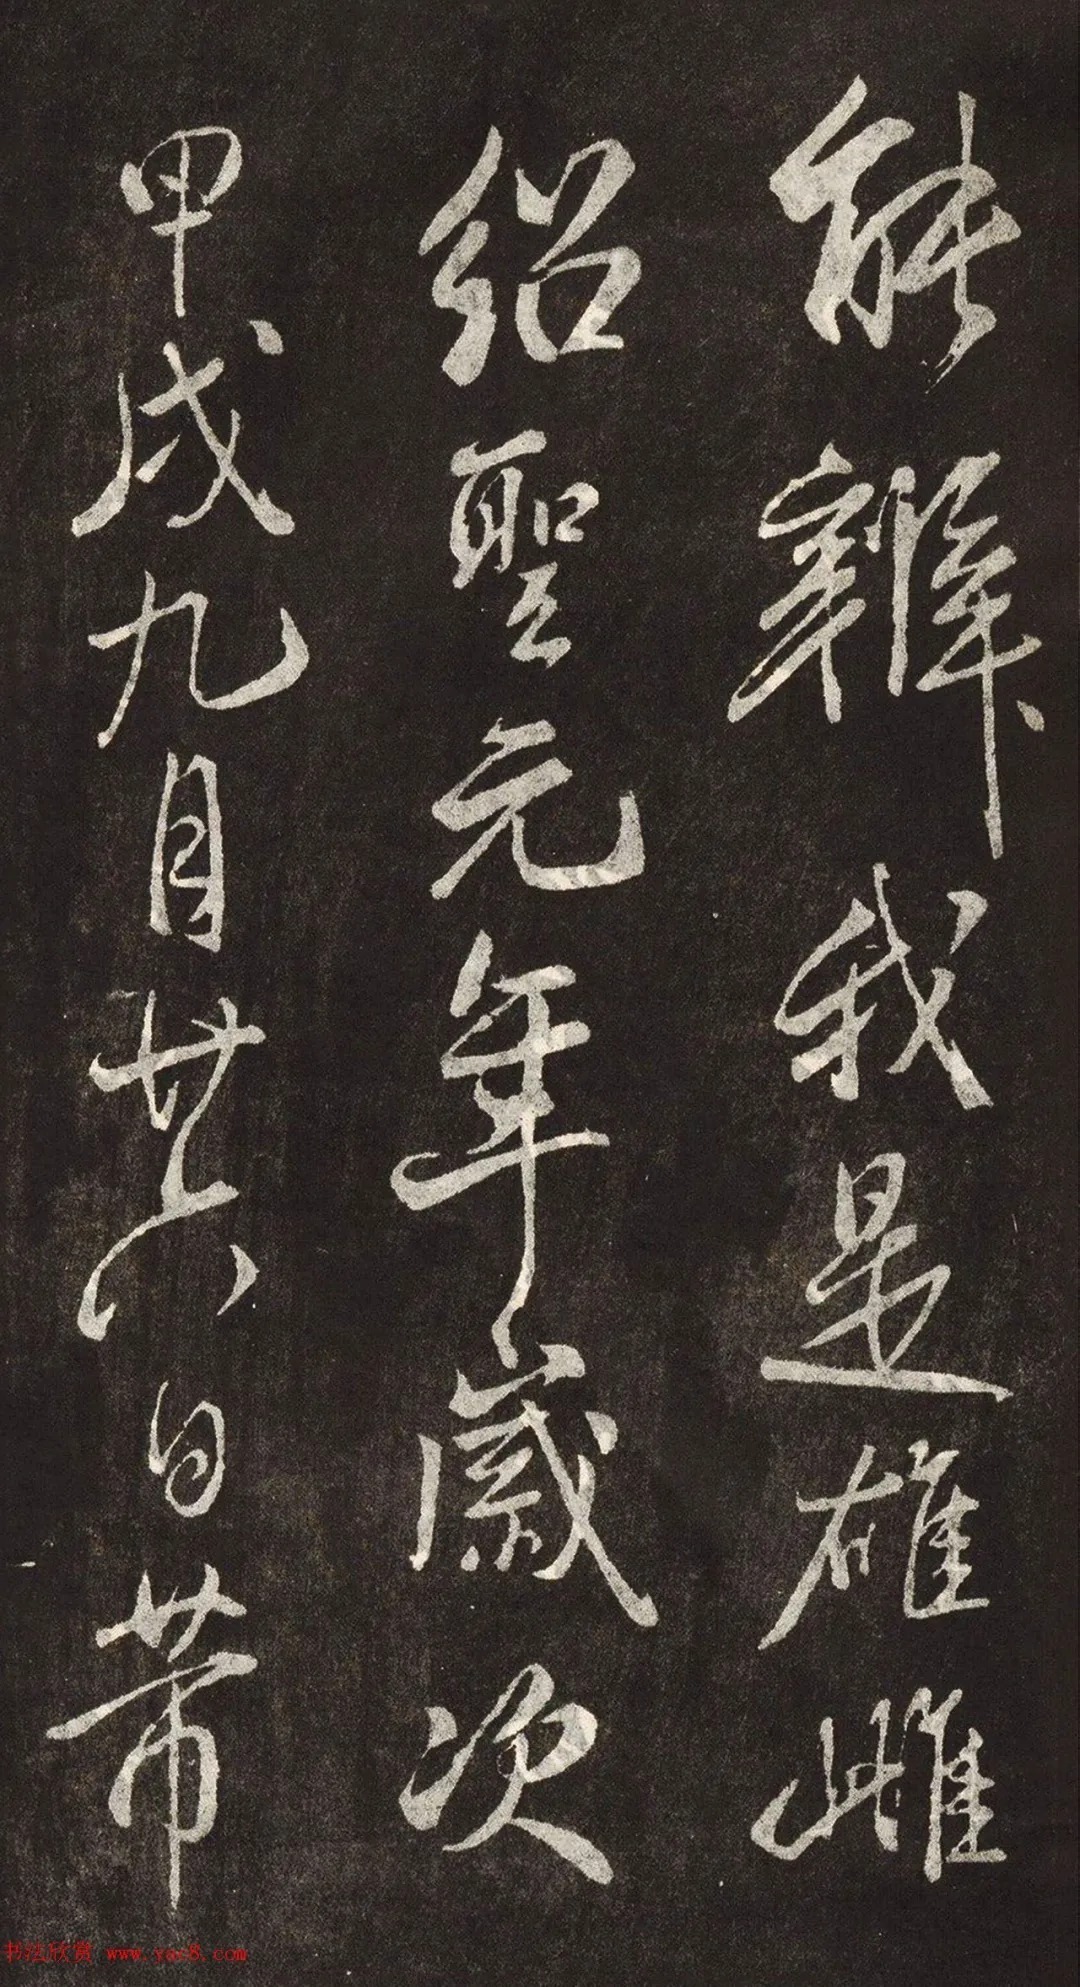 能辨我是雄雌
紹聖元年歲次
甲戌九月廿八日芾
书法欣赏 www.yac8.com